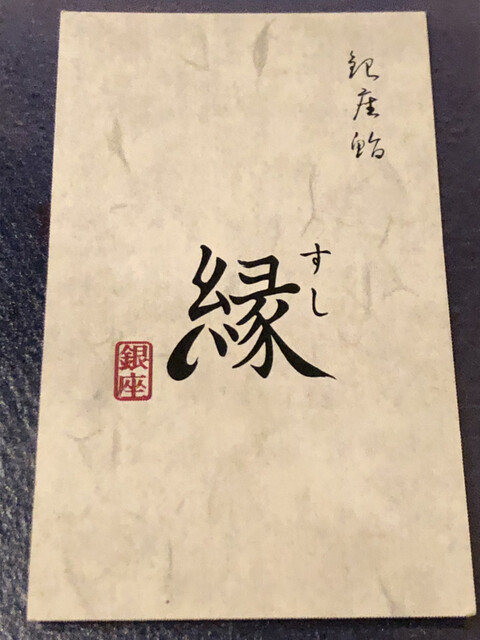 銀座鮨
すし
縁
銀座